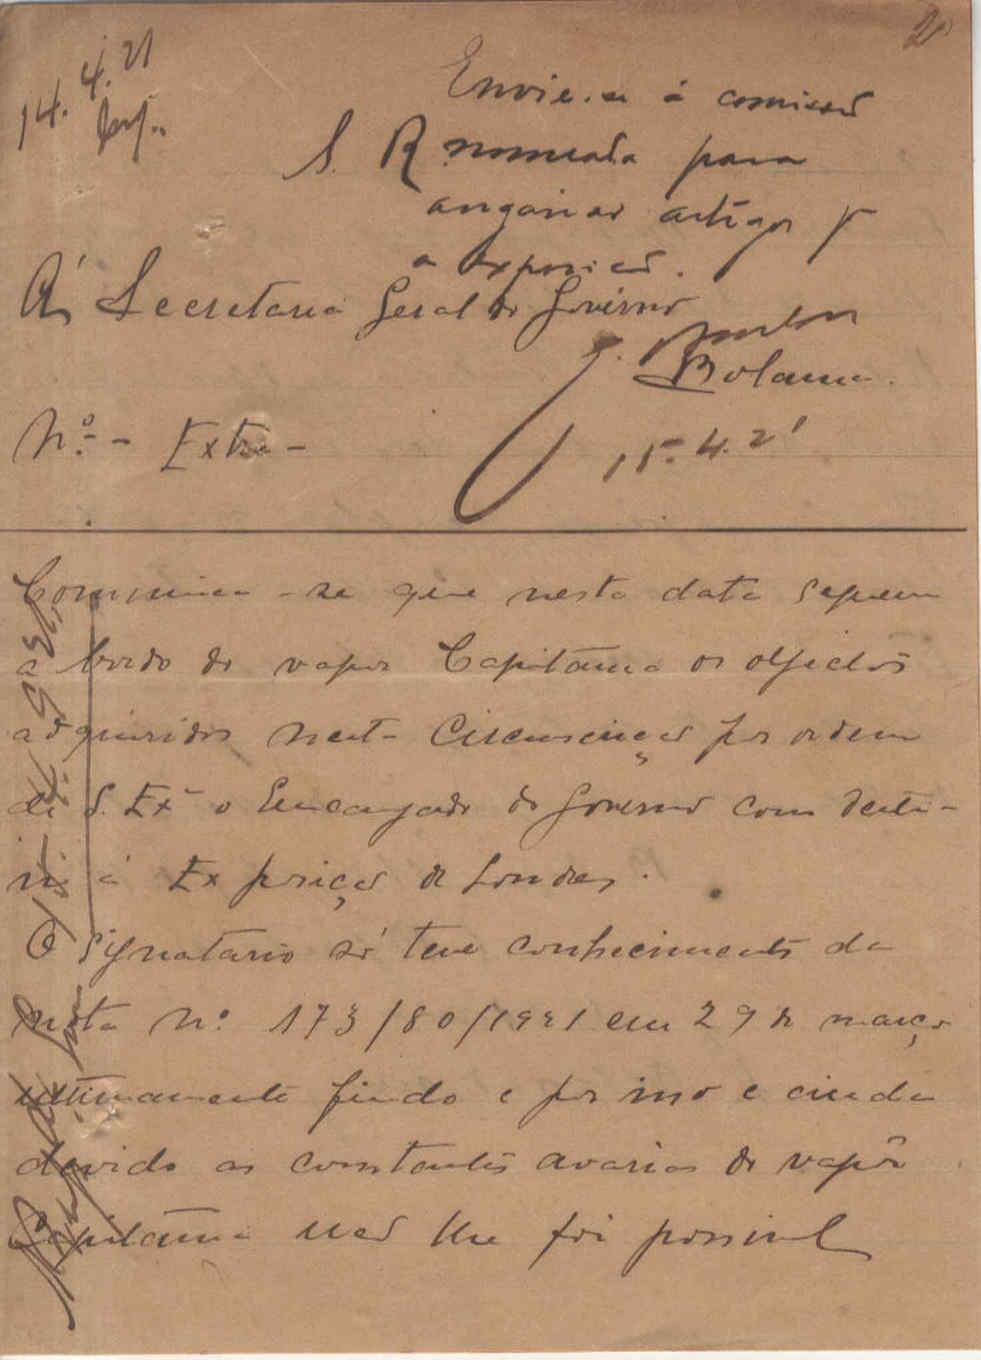 2
14.4.21
Envie-se á comissão
S. R. nomeada para
angariar artigos pª
a exposição.
Á Secretaria Geral do Govêrno
Bolama.
Nº - Extra -
15-4-21
Communica-se que nesta data seguem
a bordo do vapor Capitania os objectos
adquiridos nesta Circunscrição por ordem
de S. Exª o Encarregado do Governo com desti-
no á Exposição de Londres.
O signatario só teve conhecimento da
nota Nº 173/80/1921 em 29 de março
ultimamente findo e por isso e ainda
devido as constantes avarias do vapôr
Capitania não lhe foi possivel